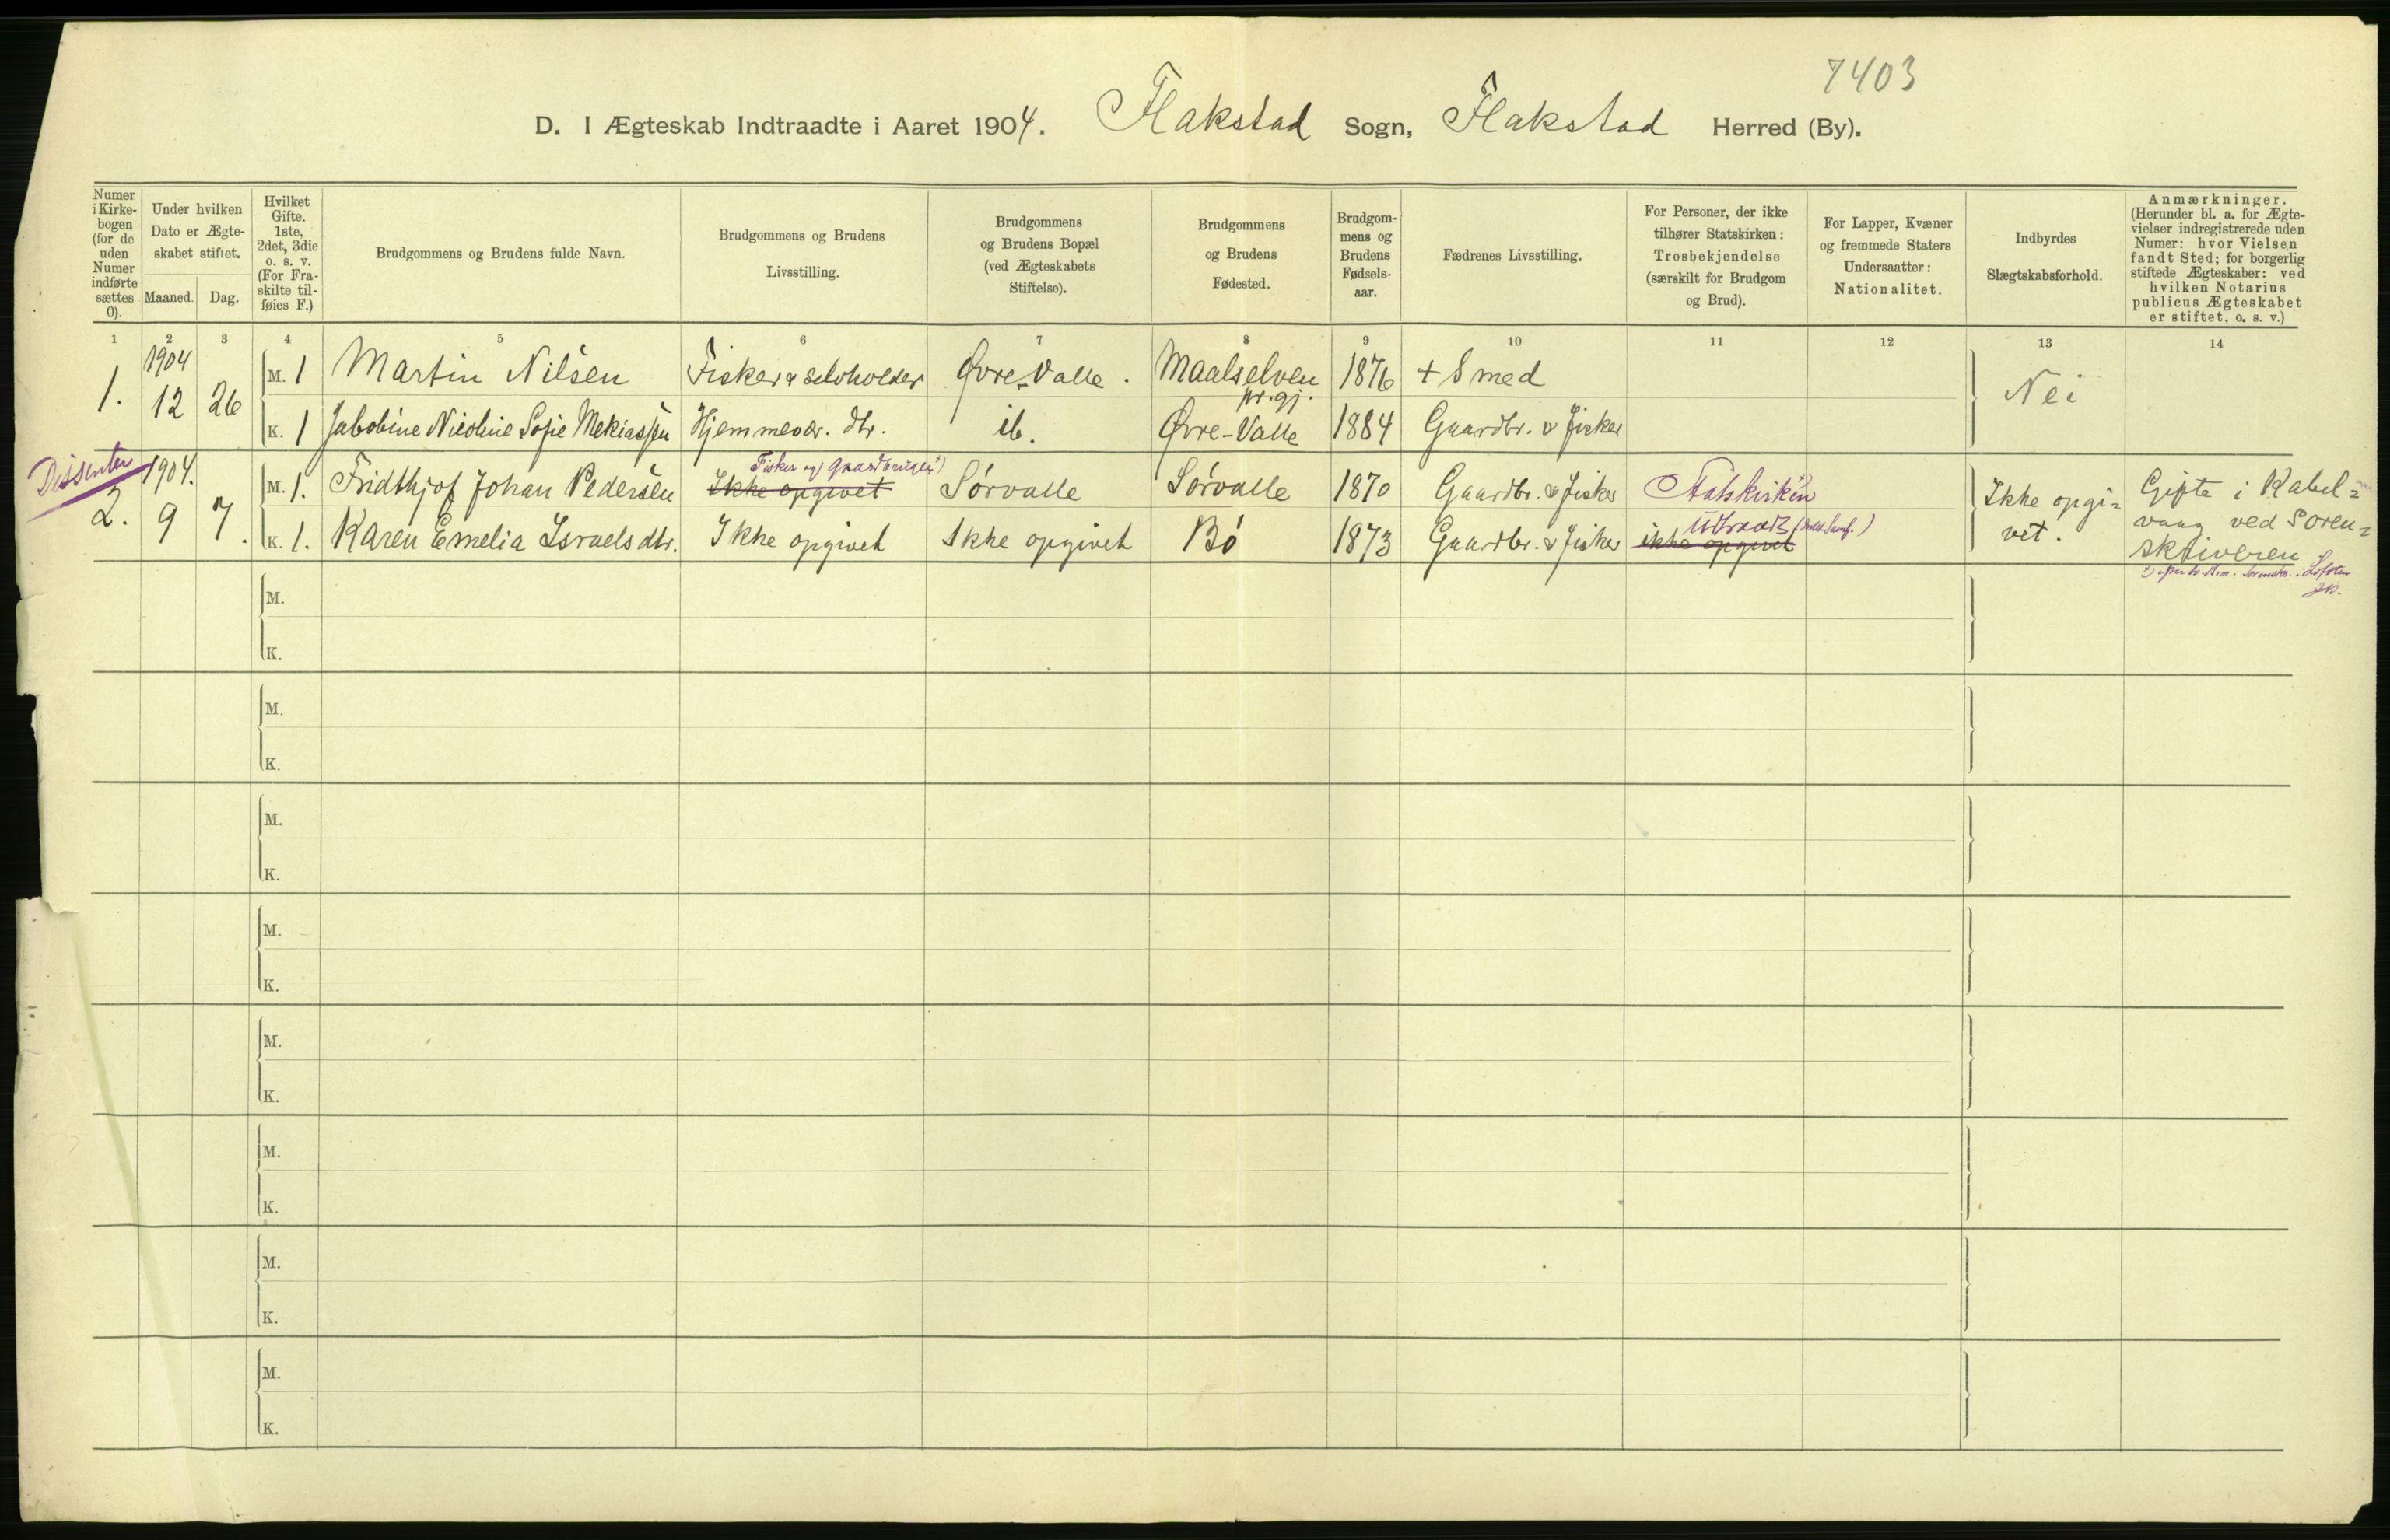 7403
D. I Ægteskab Indtraadte i Aaret 1904. Flakstad Sogn, Flakstad Herred (By).
Numer
i Kirke-
bogen
(for de
uden
Numer
indførte
sættes
0).
Under hvilken
Dato er Ægte-
skabet stiftet.
Maaned. Dag.
Hvilket
Gifte.
1ste,
2det, 3die
o. s. v.
(For Fra-
skilte til-
føies F.)
Brudgommens og Brudens fulde Navn.
Brudgommens og Brudens
Livsstilling.
Brudgommens
og Brudens Bopæl
(ved Ægteskabets
Stiftelse).
Brudgommens
og Brudens
Fødested.
Brudgom-
mens og
Brudens
Fødsels-
aar.
Fædrenes Livsstilling.
For Personer, der ikke
tilhører Statskirken:
Trosbekjendelse
(særskilt for Brudgom
og Brud).
For Lapper, Kvæner
og fremmede Staters
Undersaatter:
Nationalitet.
Indbyrdes
Slægtskabsforhold.
Anmærkninger.
(Herunder bl. a. for Ægte-
vielser indregistrerede uden
Numer: hvor Vielsen
fandt Sted; for borgerlig
stiftede Ægteskaber: ved
hvilken Notarius
publicus Ægteskabet
er stiftet, o. s. v.)
1 2 3 4 5 6 7 8 9 10 11 12 13 14
1904
1. 12 26
M. 1 Martin Nilsen Fisker & selvholder Øvre-Valle. Maalselven pr.gj. 1876 + Smed
K. 1 Jakobine Nicoline Sofie Mekiassen Hjemmevær. dtr. ib. Øvre-Valle 1884 Gaardbr. & Fisker
Nei
Dissenter
1904.
2. 9 7.
Fisker og Gaardbruger
M. 1. Fridthjof Johan Pedersen Ikke opgivet Sørvalle Sørvalle 1870 Gaardbr. & Fisker Statskirken
Udtraadt
K. 1. Karen Emelia Israelsdtr. Ikke opgivet Ikke opgivet Bø 1873 Gaardbr. & Fisker ikke opgivet
Ikke opgi=
vet.
Gifte i Kabel=
vaag ved Soren=
skriveren
Lofoten
M.
K.
M.
K.
M.
K.
M.
K.
M.
K.
M.
K.
M.
K.
M.
K.